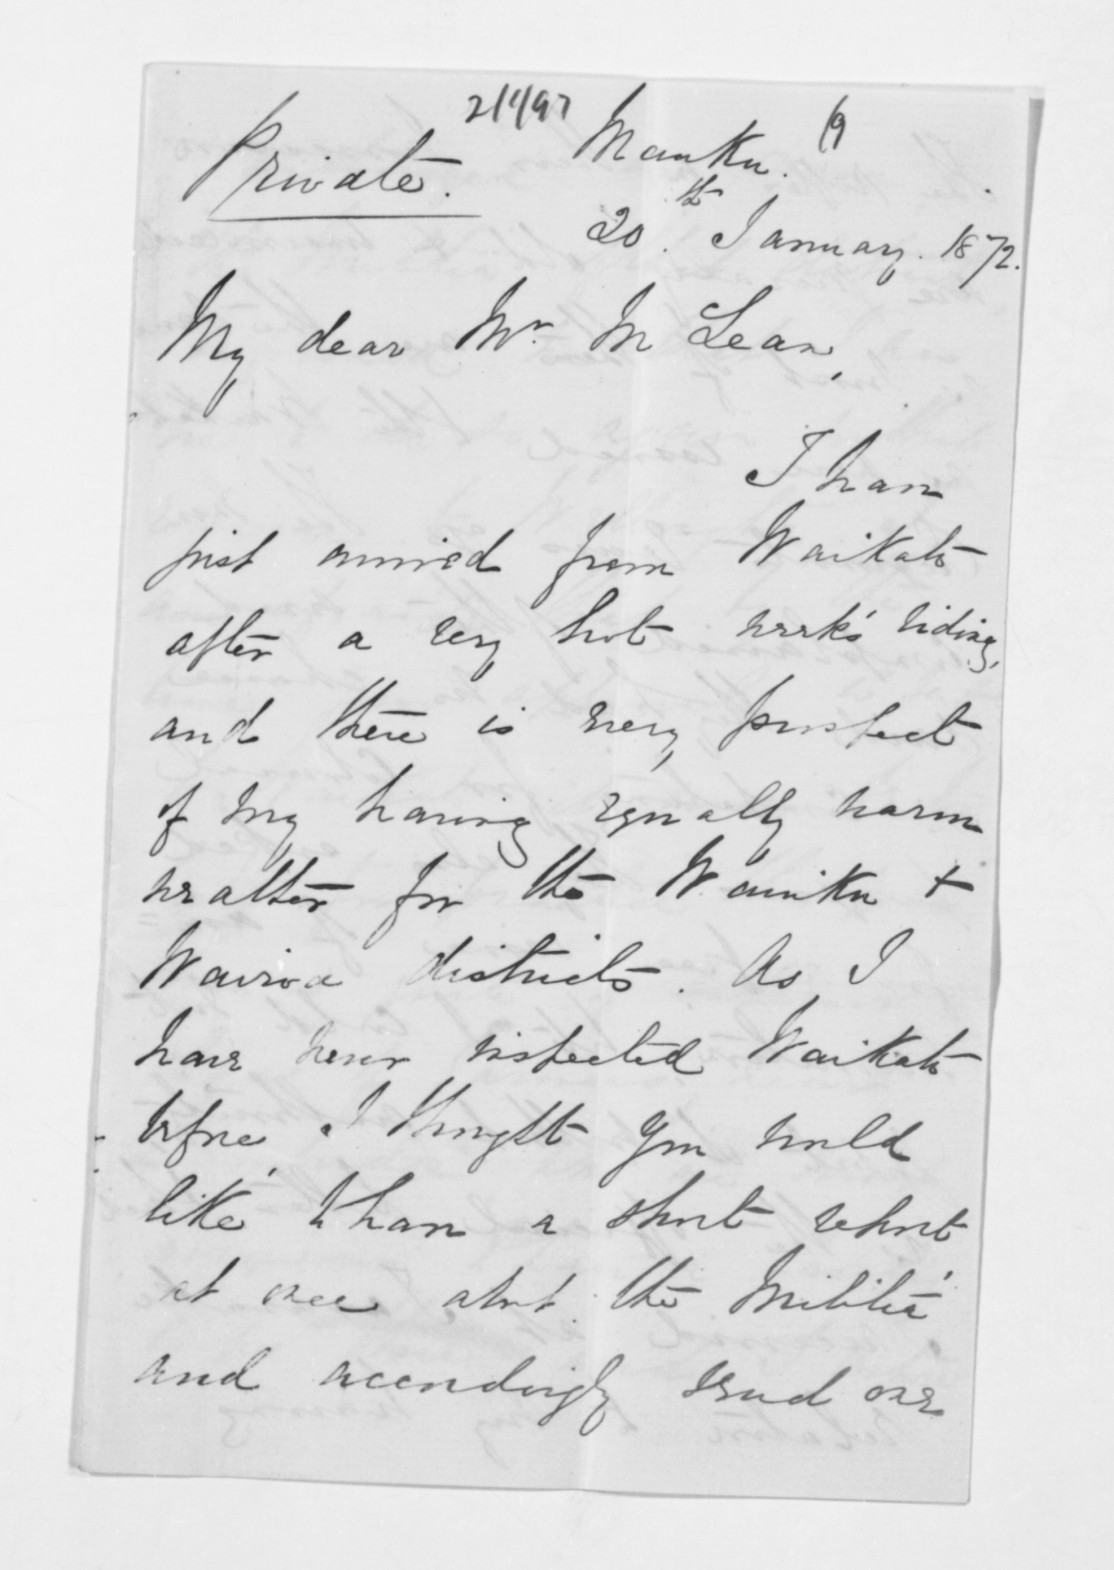 21497
19
Private.
Mauku.
20th January. 1872.
My dear Mr. McLean,
I have
just arrived from Waikato
after a very hot week's riding,
and there is every prospect
of my having equally warm
weather for the Waiuku +
Wairoa districts. As I
have never inspected Waikato
before, I thought you would
like to have a short report
at once abt. the Militia
and accordingly send one